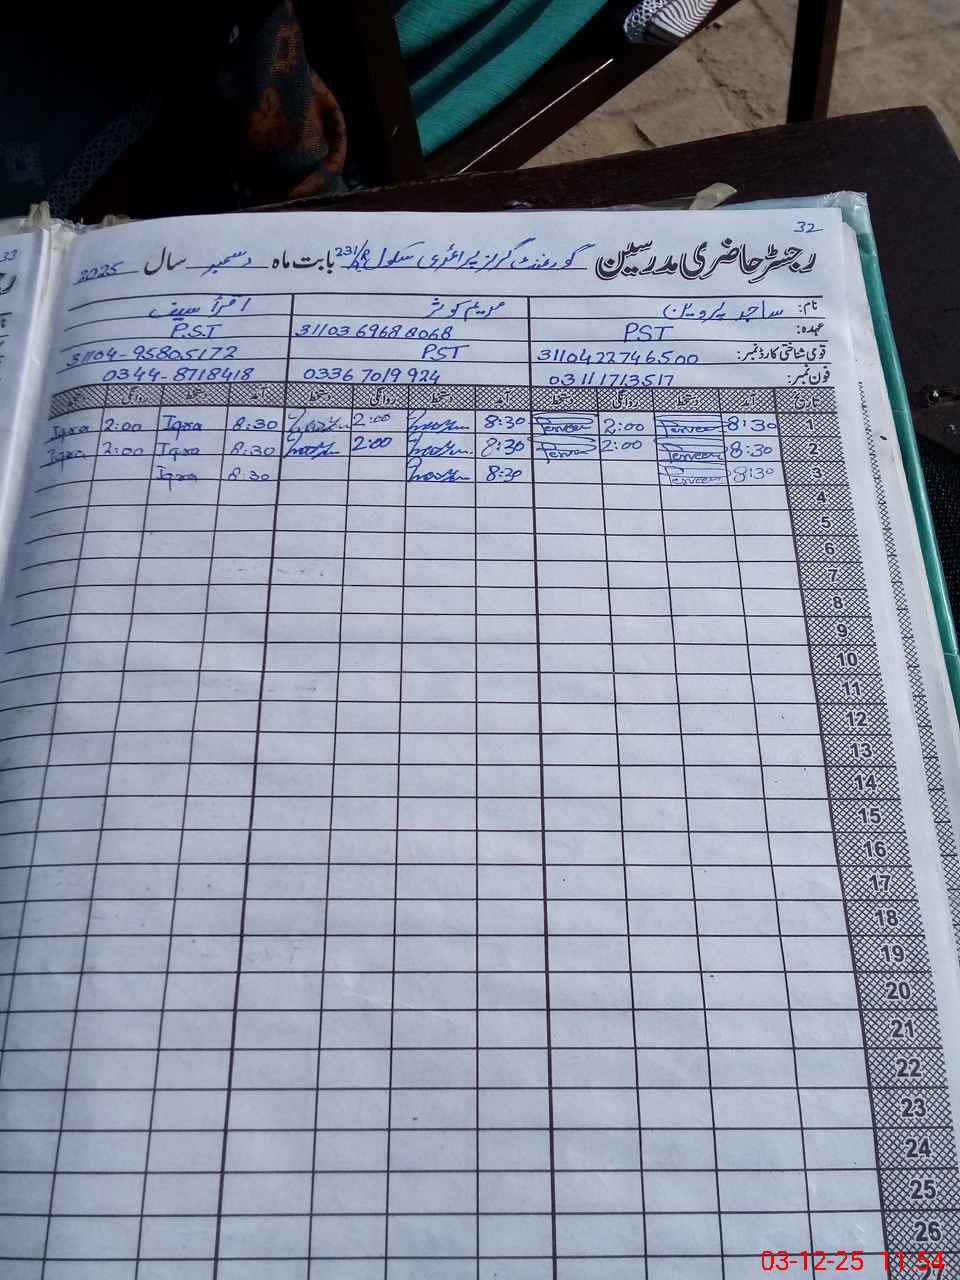 32
رجسٹر حاضری مدرسین گورنمنٹ گرلز پرائمری سکول 231 بابت ماہ دسمبر سال 2025
نام: ساجدہ پروین کوثر اقرأ سیف
عہدہ: PST 31103 6968 8068 P.S.T
قومی شناختی کارڈ نمبر: 31104 22746500 PST 31104-95805172
فون نمبر: 0311 1713517 0336 7019 924 0344-8718418
تاریخ آمد دستخط روانگی دستخط آمد دستخط روانگی دستخط آمد دستخط روانگی دستخط
1 8:30 Perveen 2:00 Perveen 8:30 2:00 8:30 Iqra 2:00 Iqra
2 8:30 Perveen 2:00 Perveen 8:30 2:00 8:30 Iqra 2:00 Iqra
3 8:30 Perveen 8:30 8:30 Iqra
4
5
6
7
8
9
10
11
12
13
14
15
16
17
18
19
20
21
22
23
24
25
26
27
33
03-12-25 11:54